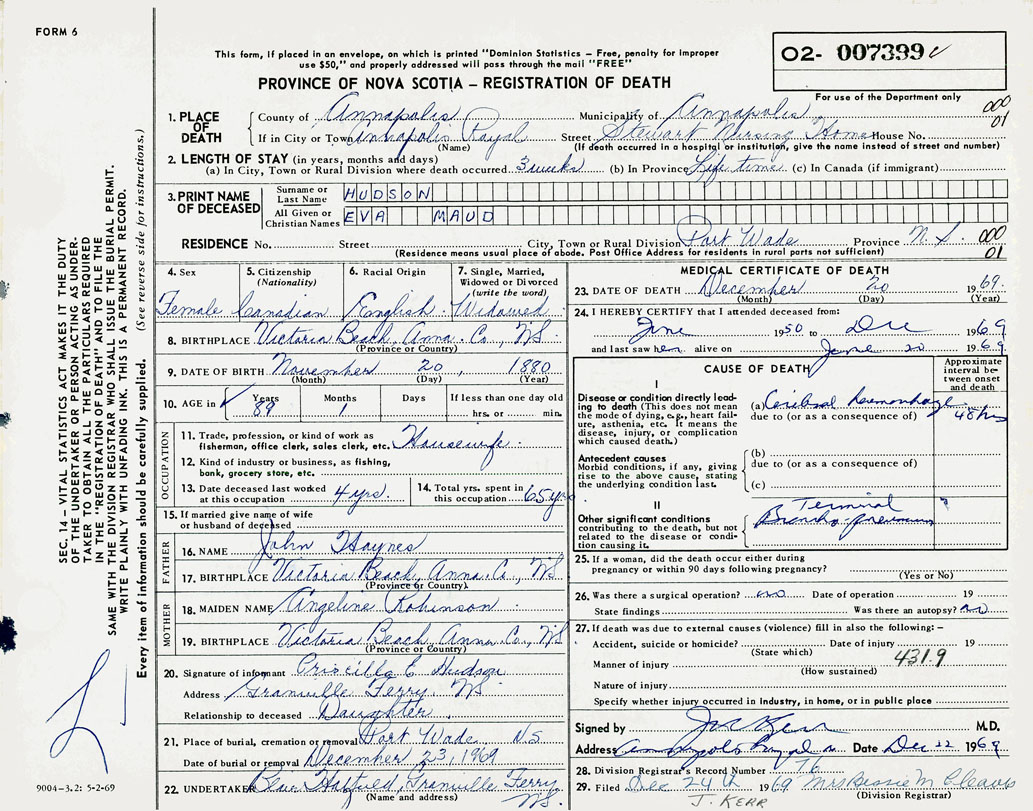 FORM 6
This form, if placed in an envelope, on which is printed "Dominion Statistics – Free, penalty for improper
use $50," and properly addressed will pass through the mail "FREE"
PROVINCE OF NOVA SCOTIA – REGISTRATION OF DEATH
02- 007399
For use of the Department only
1. PLACE OF DEATH
County of Annapolis Municipality of Annapolis 000
If in City or Town Annapolis Royal Street Stewart Nursing Home House No. 01
(Name) (If death occurred in a hospital or institution, give the name instead of street and number)
2. LENGTH OF STAY (in years, months and days)
(a) In City, Town or Rural Division where death occurred 3 weeks (b) In Province Life time (c) In Canada (if immigrant)
3. PRINT NAME OF DECEASED
Surname or Last Name HUDSON
All Given or Christian Names EVA MAUD
RESIDENCE No. Street City, Town or Rural Division Port Wade Province N.S. 000
(Residence means usual place of abode. Post Office Address for residents in rural parts not sufficient) 01
4. Sex
Female
5. Citizenship
(Nationality)
Canadian
6. Racial Origin
English
7. Single, Married,
Widowed or Divorced
(write the word)
Widowed
8. BIRTHPLACE Victoria Beach, Anna. Co., NS
(Province or Country)
9. DATE OF BIRTH November 20, 1880
(Month) (Day) (Year)
10. AGE in Years Months Days If less than one day old
89 1 hrs. or min.
OCCUPATION
11. Trade, profession, or kind of work as
fisherman, office clerk, sales clerk, etc. Housewife
12. Kind of industry or business, as fishing,
bank, grocery store, etc.
13. Date deceased last worked
at this occupation 4 yrs.
14. Total yrs. spent in
this occupation 65 yrs
15. If married give name of wife
or husband of deceased
FATHER
16. NAME John Haynes
17. BIRTHPLACE Victoria Beach, Anna. Co., NS
(Province or Country)
MOTHER
18. MAIDEN NAME Angeline Robinson
19. BIRTHPLACE Victoria Beach Anna Co., NS
(Province or Country)
20. Signature of informant Priscilla E Hudson
Address Granville Ferry, NS
Relationship to deceased Daughter
21. Place of burial, cremation or removal Port Wade N.S.
Date of burial or removal December 23, 1969
22. UNDERTAKER Granville Ferry
(Name and address) NS.
MEDICAL CERTIFICATE OF DEATH
23. DATE OF DEATH December 20 1969.
(Month) (Day) (Year)
24. I HEREBY CERTIFY that I attended deceased from:
June 1950 to Dec 1969
and last saw her alive on June 20 1969
CAUSE OF DEATH
Approximate
interval between
onset
and death
I
Disease or condition directly leading
to death (This does not mean
the mode of dying, e.g., heart failure,
asthenia, etc. It means the
disease, injury, or complication
which caused death.)
(a) Cerebral haemorrhage
due to (or as a consequence of) 48 hrs
Antecedent causes
Morbid conditions, if any, giving
rise to the above cause, stating
the underlying condition last.
(b)
due to (or as a consequence of)
(c)
II
Other significant conditions
contributing to the death, but not
related to the disease or condition
causing it.
Terminal
Broncho-pneumonia
25. If a woman, did the death occur either during
pregnancy or within 90 days following pregnancy?
(Yes or No)
26. Was there a surgical operation? no Date of operation 19
State findings Was there an autopsy? no
27. If death was due to external causes (violence) fill in also the following: –
Accident, suicide or homicide? Date of injury 19
(State which)
Manner of injury 431.9
(How sustained)
Nature of injury
Specify whether injury occurred in Industry, in home, or in public place
Signed by J. Kerr M.D.
Address Annapolis Royal Date Dec 22 1969
28. Division Registrar's Record Number 76
29. Filed Dec 24th 1969 Mrs Bessie M Cleaves
J. KERR (Division Registrar)
SEC. 14 – VITAL STATISTICS ACT MAKES IT THE DUTY
OF THE UNDERTAKER OR PERSON ACTING AS UNDERTAKER
TO OBTAIN ALL THE PARTICULARS REQUIRED
IN THE "REGISTRATION OF DEATH" AND TO FILE THE
SAME WITH THE DIVISION REGISTRAR WHO SHALL ISSUE THE BURIAL PERMIT.
WRITE PLAINLY WITH UNFADING INK. THIS IS A PERMANENT RECORD.
Every item of information should be carefully supplied. (See reverse side for instructions.)
9004-3.2: 5-2-69